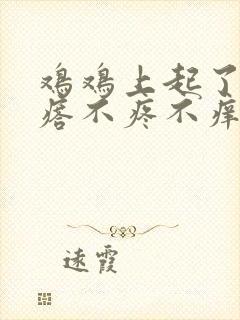 鸡鸡上起了
瘩不疼不痒
远霞